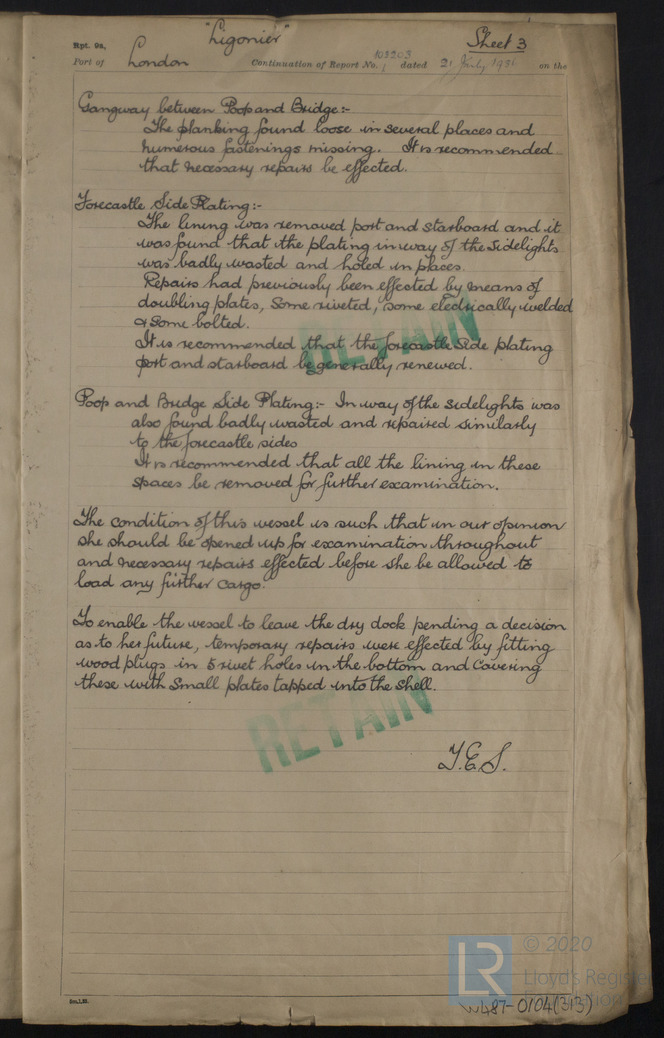 "Ligonier"
Sheet 3
Rpt. 9a,
Port of London Continuation of Report No. 103203 dated 21 July 1936 on the
Gangway between Poop and Bridge:-
The planking found loose in several places and
numerous fastenings missing. It is recommended
that necessary repairs be effected.
Forecastle Side Plating:-
The lining was removed port and starboard and it
was found that the plating in way of the sidelights
was badly wasted and holed in places.
Repairs had previously been effected by means of
doubling plates, some riveted, some electrically welded
& some bolted.
It is recommended that the forecastle side plating
port and starboard be generally renewed.
RETAIN
Poop and Bridge Side Plating:- In way of the sidelights was
also found badly wasted and repaired similarly
to the forecastle sides
It is recommended that all the lining in these
spaces be removed for further examination.
The condition of this vessel is such that in our opinion
she should be opened up for examination throughout
and necessary repairs effected before she be allowed to
load any further cargo.
To enable the vessel to leave the dry dock pending a decision
as to her future, temporary repairs were effected by fitting
wood plugs in 5 rivet holes in the bottom and covering
these with small plates tapped into the shell.
RETAIN
T.E.S.
LR
© 2020
Lloyd's Register
Foundation
W487-0104(3/3)